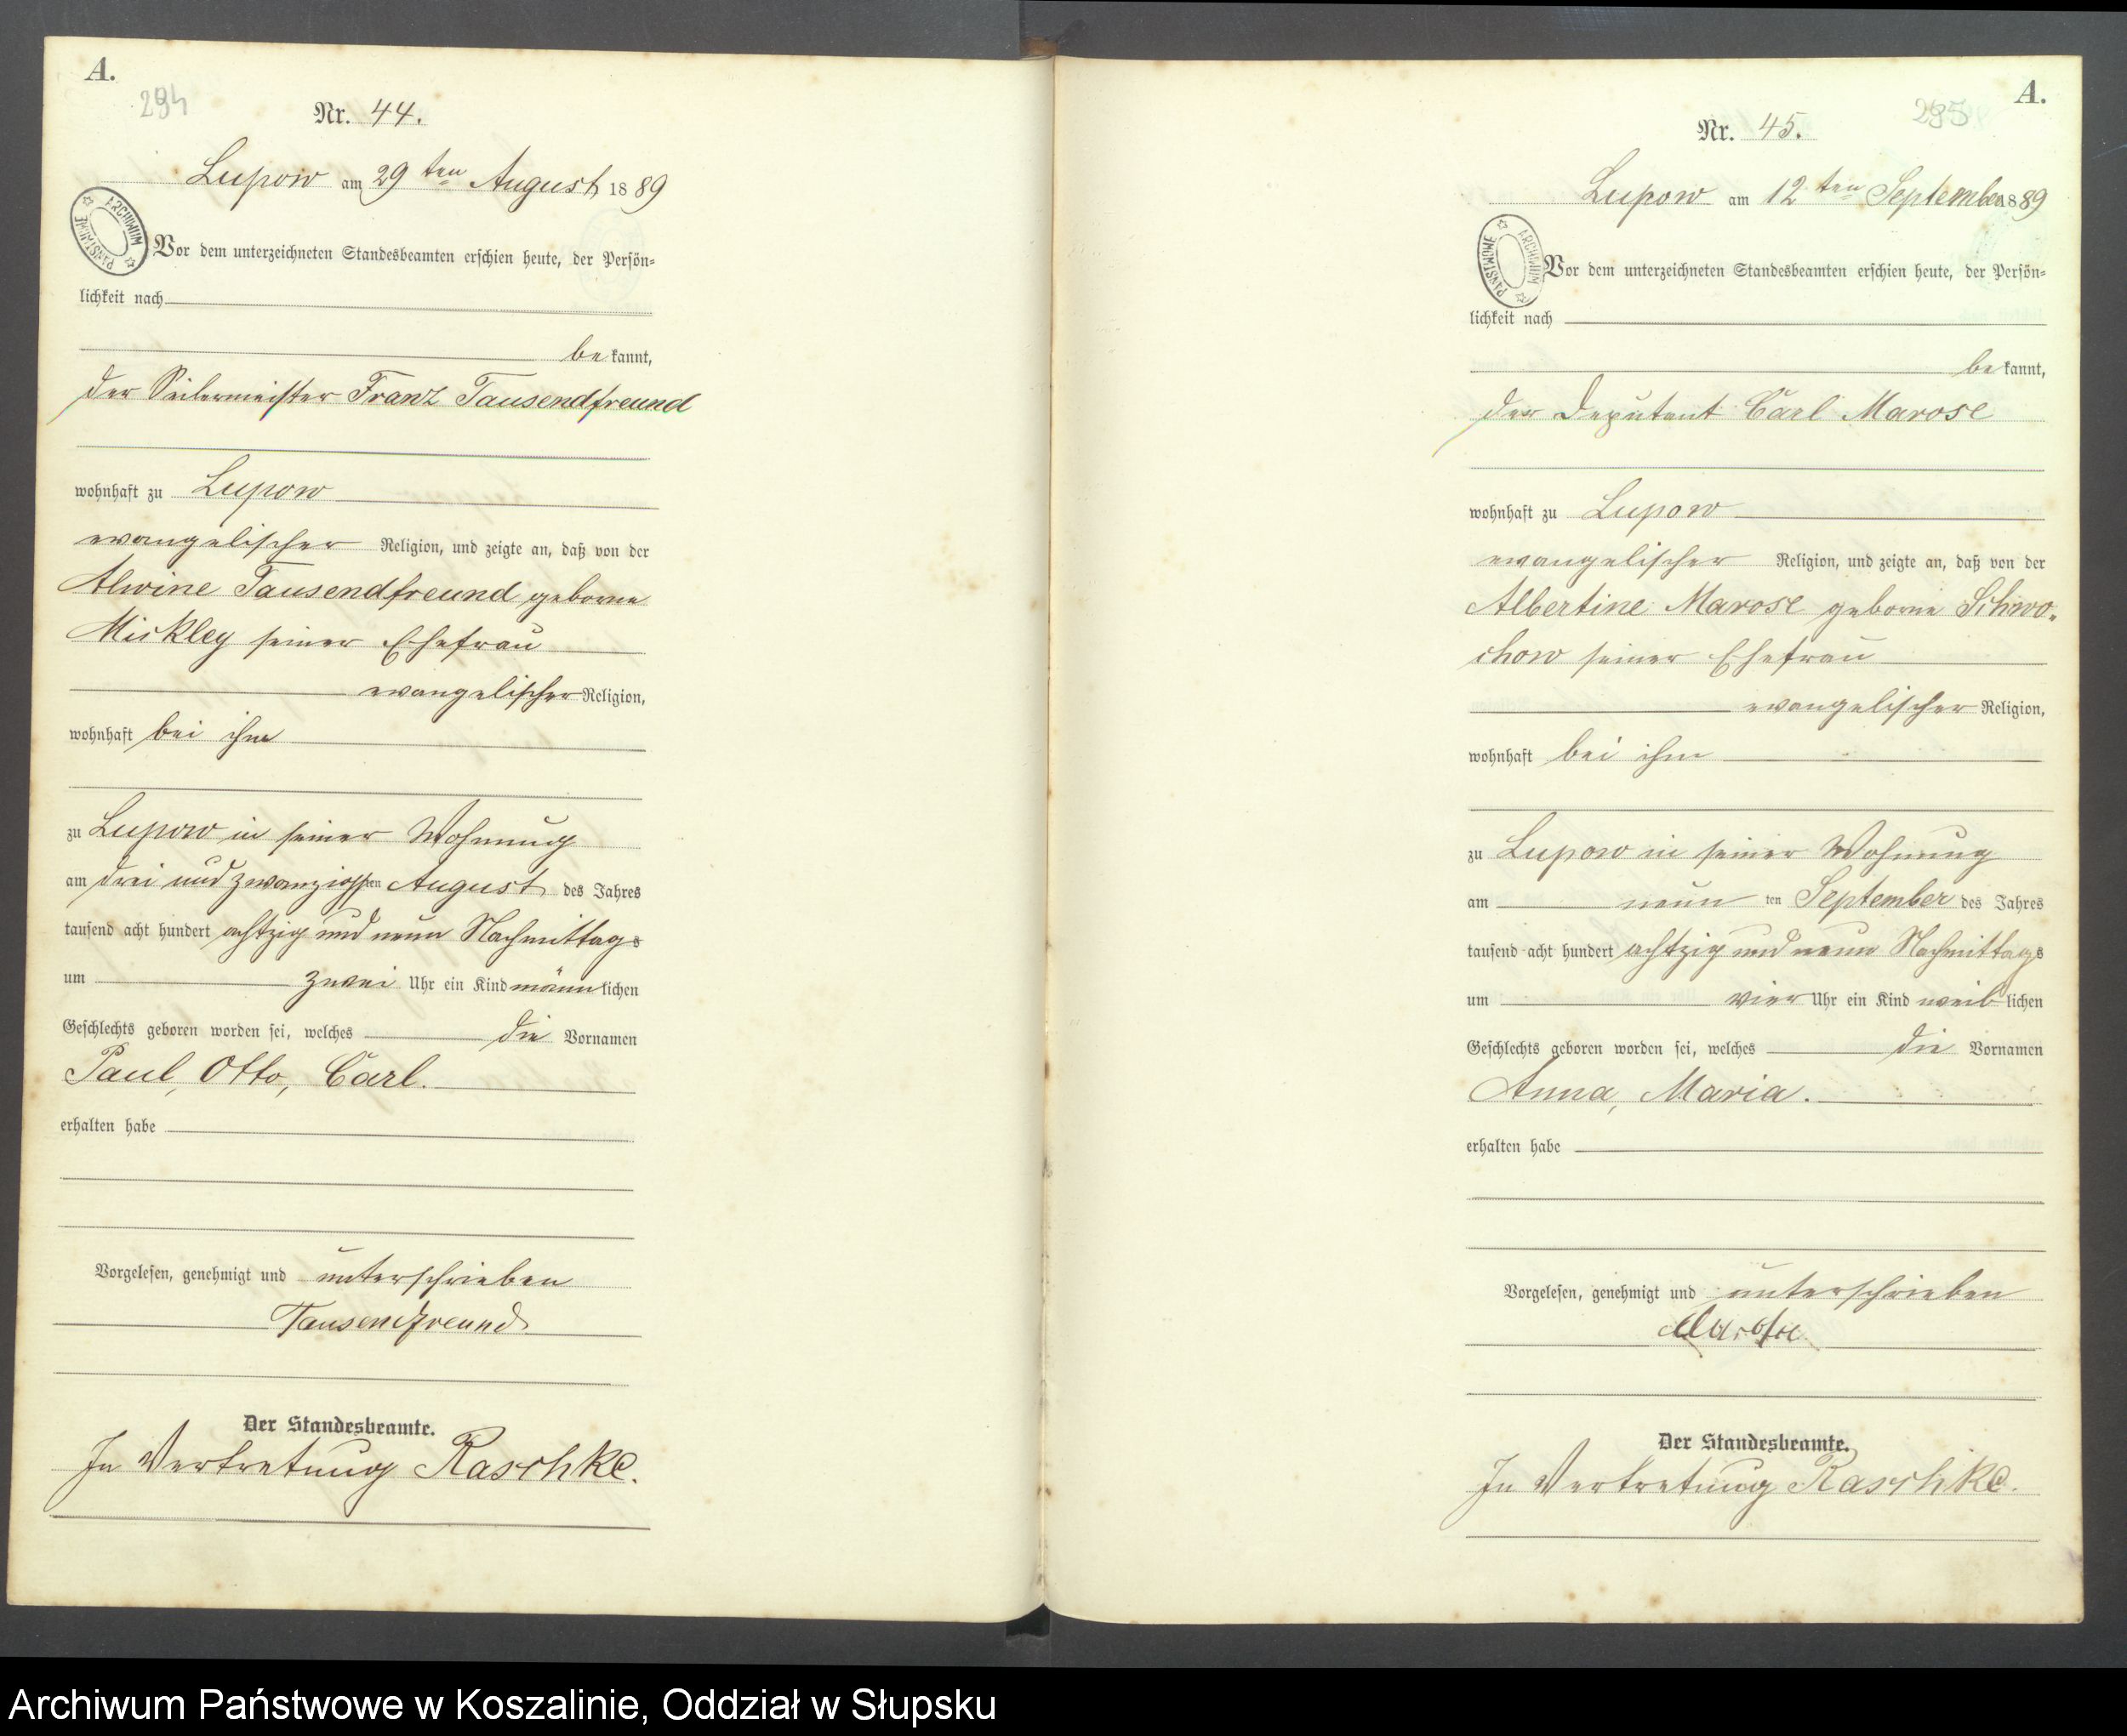 A.
294
Nr. 44.
Lupow am 29 ten August 1889
ARCHIWUM PAŃSTWOWE
Vor dem unterzeichneten Standesbeamten erschien heute, der Persön=
lichkeit nach
bekannt,
der Seilermeister Franz Tausendfreund
wohnhaft zu Lupow
evangelischer Religion, und zeigte an, daß von der
Alwine Tausendfreund geborne
Mickley seiner Ehefrau
evangelischer Religion,
wohnhaft bei ihm
zu Lupow in seiner Wohnung
am drei und zwanzigsten August des Jahres
tausend acht hundert achtzig und neun Nachmittags
um zwei Uhr ein Kind männlichen
Geschlechts geboren worden sei, welches die Vornamen
Paul, Otto, Carl.
erhalten habe
Vorgelesen, genehmigt und unterschrieben
Tausendfreund
Der Standesbeamte.
In Vertretung Raschke.
A.
295
Nr. 45.
Lupow am 12 ten September 1889
ARCHIWUM PAŃSTWOWE
Vor dem unterzeichneten Standesbeamten erschien heute, der Persön=
lichkeit nach
bekannt,
der Deputant Carl Marose
wohnhaft zu Lupow
evangelischer Religion, und zeigte an, daß von der
Albertine Marose geborne Schwo-
chow seiner Ehefrau
evangelischer Religion,
wohnhaft bei ihm
zu Lupow in seiner Wohnung
am neunten September des Jahres
tausend acht hundert achtzig und neun Nachmittags
um vier Uhr ein Kind weiblichen
Geschlechts geboren worden sei, welches die Vornamen
Anna, Maria.
erhalten habe
Vorgelesen, genehmigt und unterschrieben
Marose.
Der Standesbeamte.
In Vertretung Raschke.
Archiwum Państwowe w Koszalinie, Oddział w Słupsku